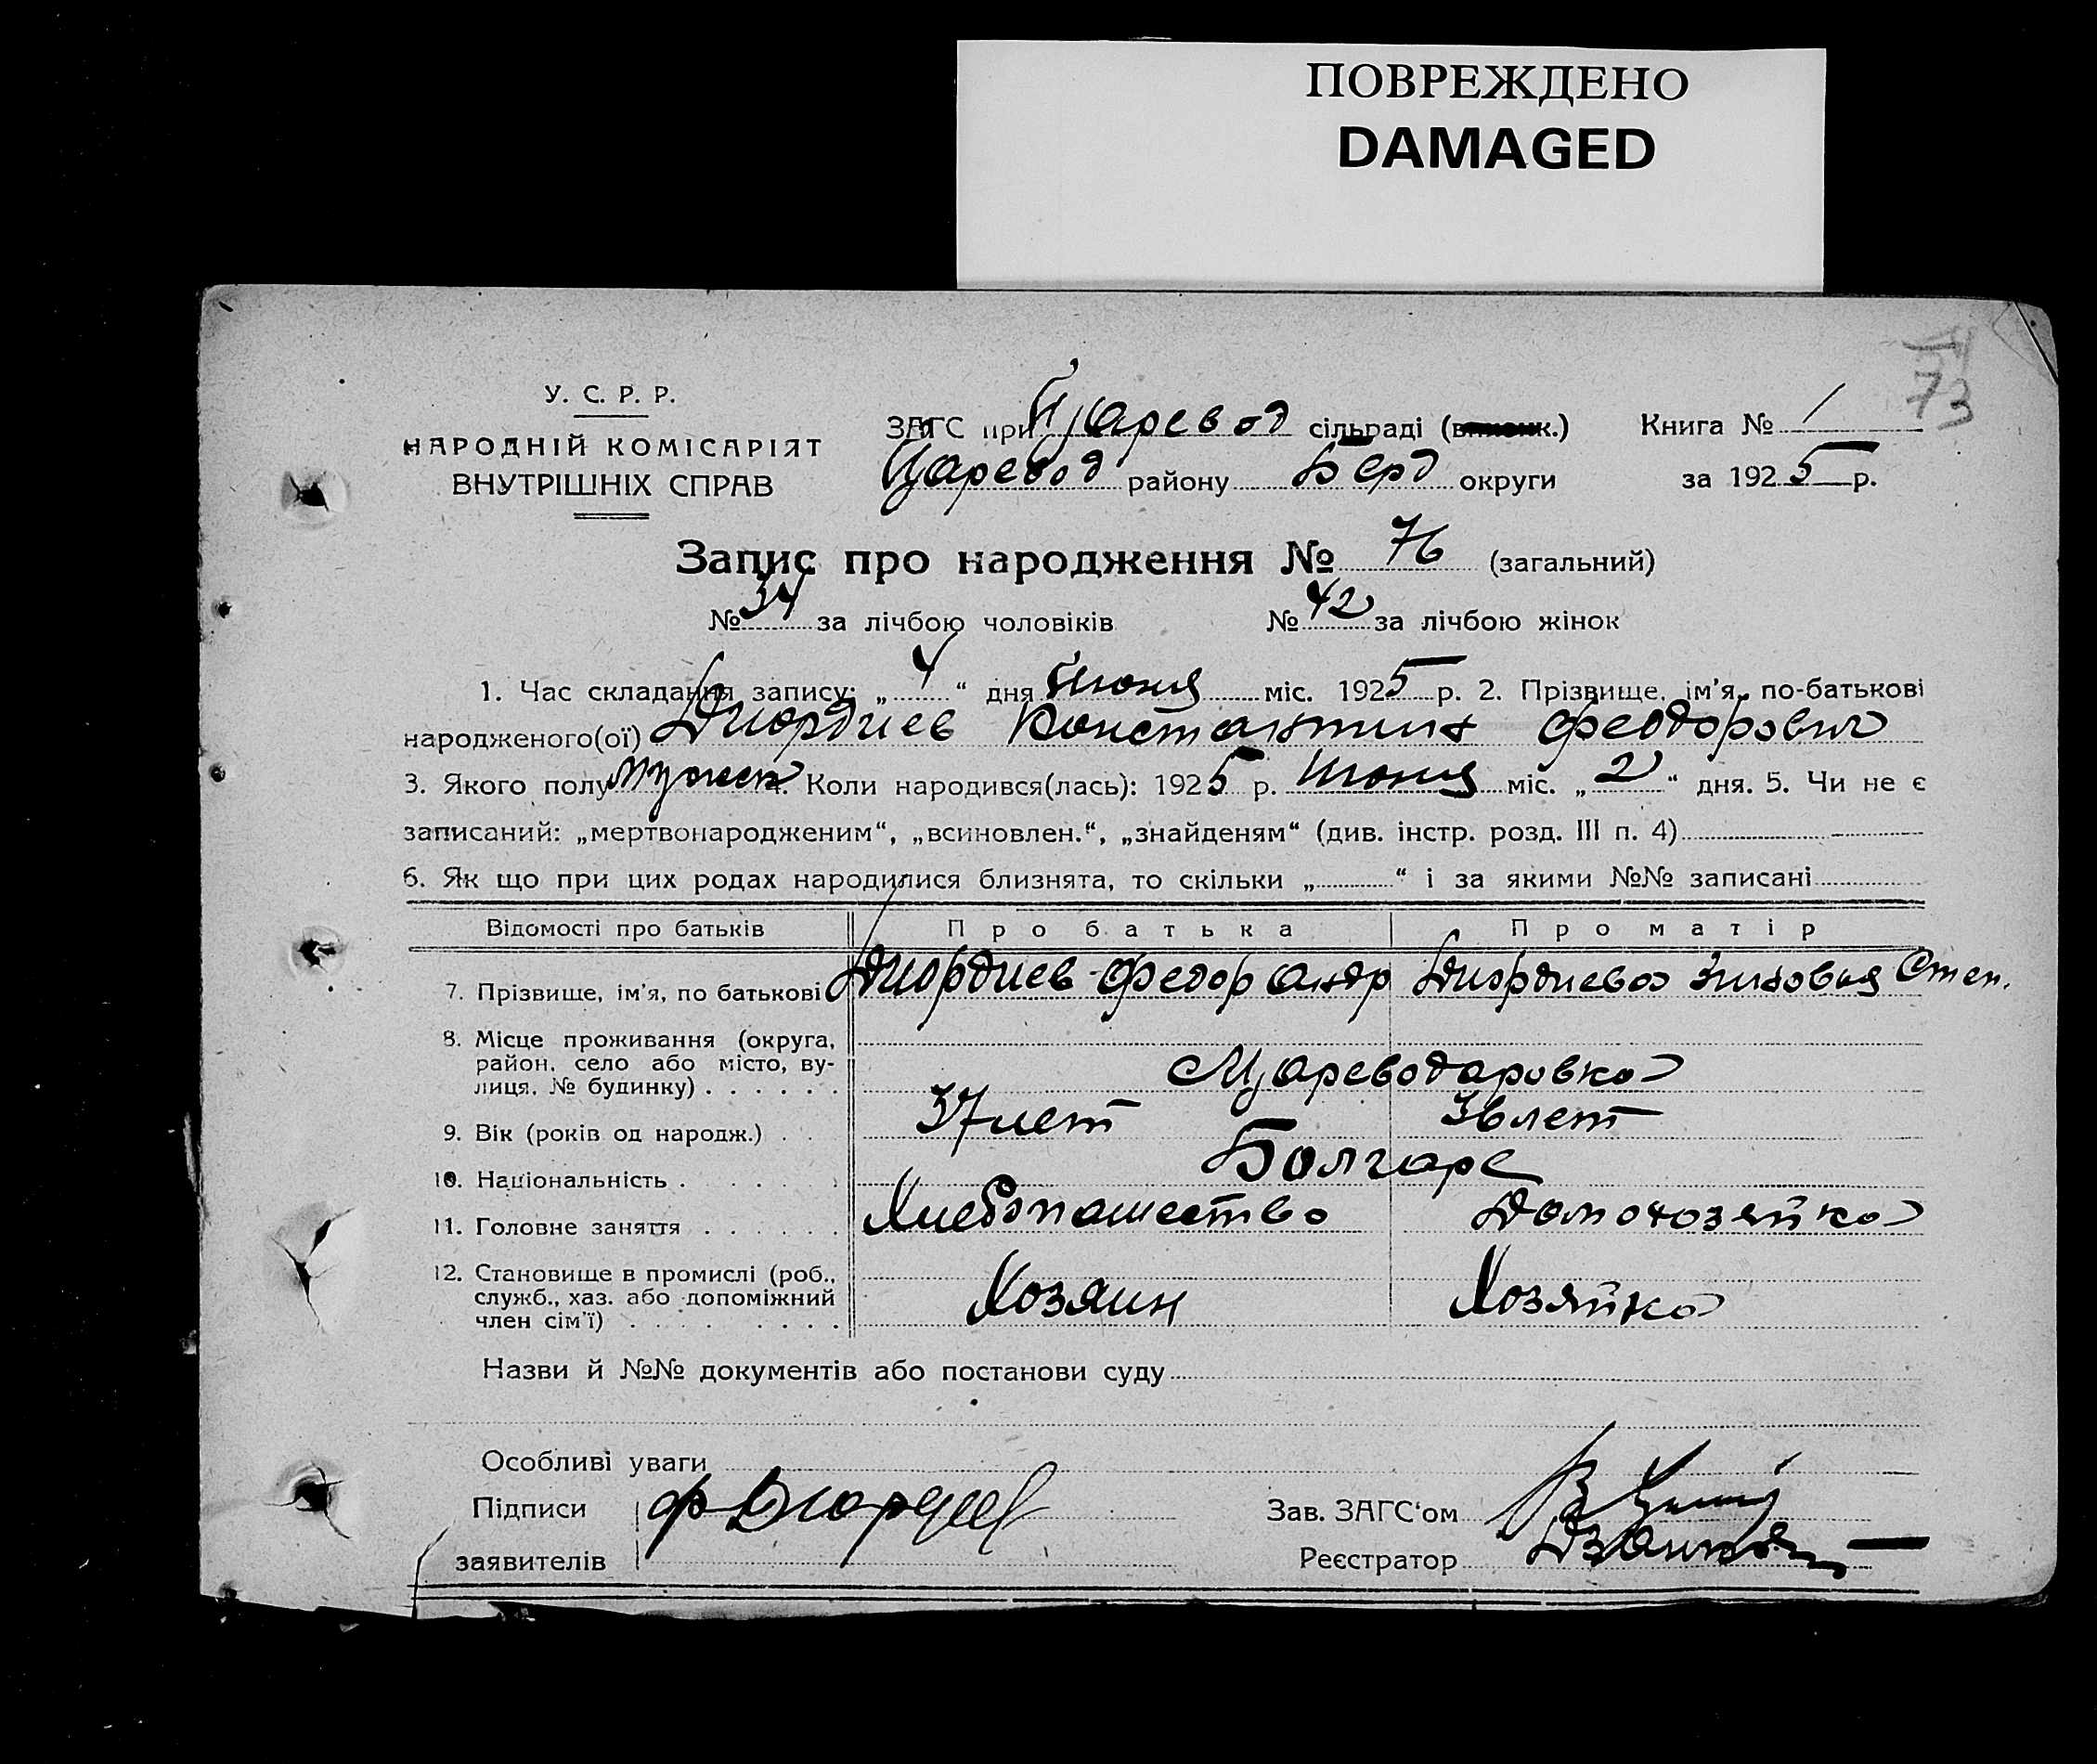 ПОВРЕЖДЕНО
DAMAGED
73
У. С. Р. Р.
НАРОДНІЙ КОМІСАРІЯТ
ВНУТРІШНІХ СПРАВ
ЗАГС при Царевод сільраді (виконк.)
Царевод району Берд округи
Книга № 1
за 1925 р.
Запис про народження № 76 (загальний)
№ 34 за лічбою чоловіків № 42 за лічбою жінок
1. Час складання запису: „ 4 “ дня Июня міс. 1925 р. 2. Прізвище, ім'я, по-батькові
народженого(ої) Диордиев Константин Феодорович
3. Якого полу мужск 4. Коли народився(лась): 1925 р. Июня міс. „ 2 “ дня. 5. Чи не є
записаний: „мертвонародженим“, „всиновлен.“, „знайденям“ (див. інстр. розд. III п. 4)
6. Як що при цих родах народилися близнята, то скільки „ “ і за якими №№ записані
Відомості про батьків Про батька Про матір
7. Прізвище, ім'я, по батькові Диордиев Федор Андр Диордиева Зиновия Степ.
8. Місце проживання (округа,
район, село або місто, ву-
лиця, № будинку) . . . . . . Цареводаровка
9. Вік (років од народж.) . . 37 лет 36 лет
10. Національність . . . . . Болгаре
11. Головне заняття . . . . . . Хлебопашество Домохозяйка
12. Становище в промислі (роб.,
служб., хаз. або допоміжний
член сім'ї) . . . . . . . . Хозяин Хозяйка
Назви й №№ документів або постанови суду
Особливі уваги
Підписи Ф Диордиев Зав. ЗАГС'ом
заявителів Реєстратор